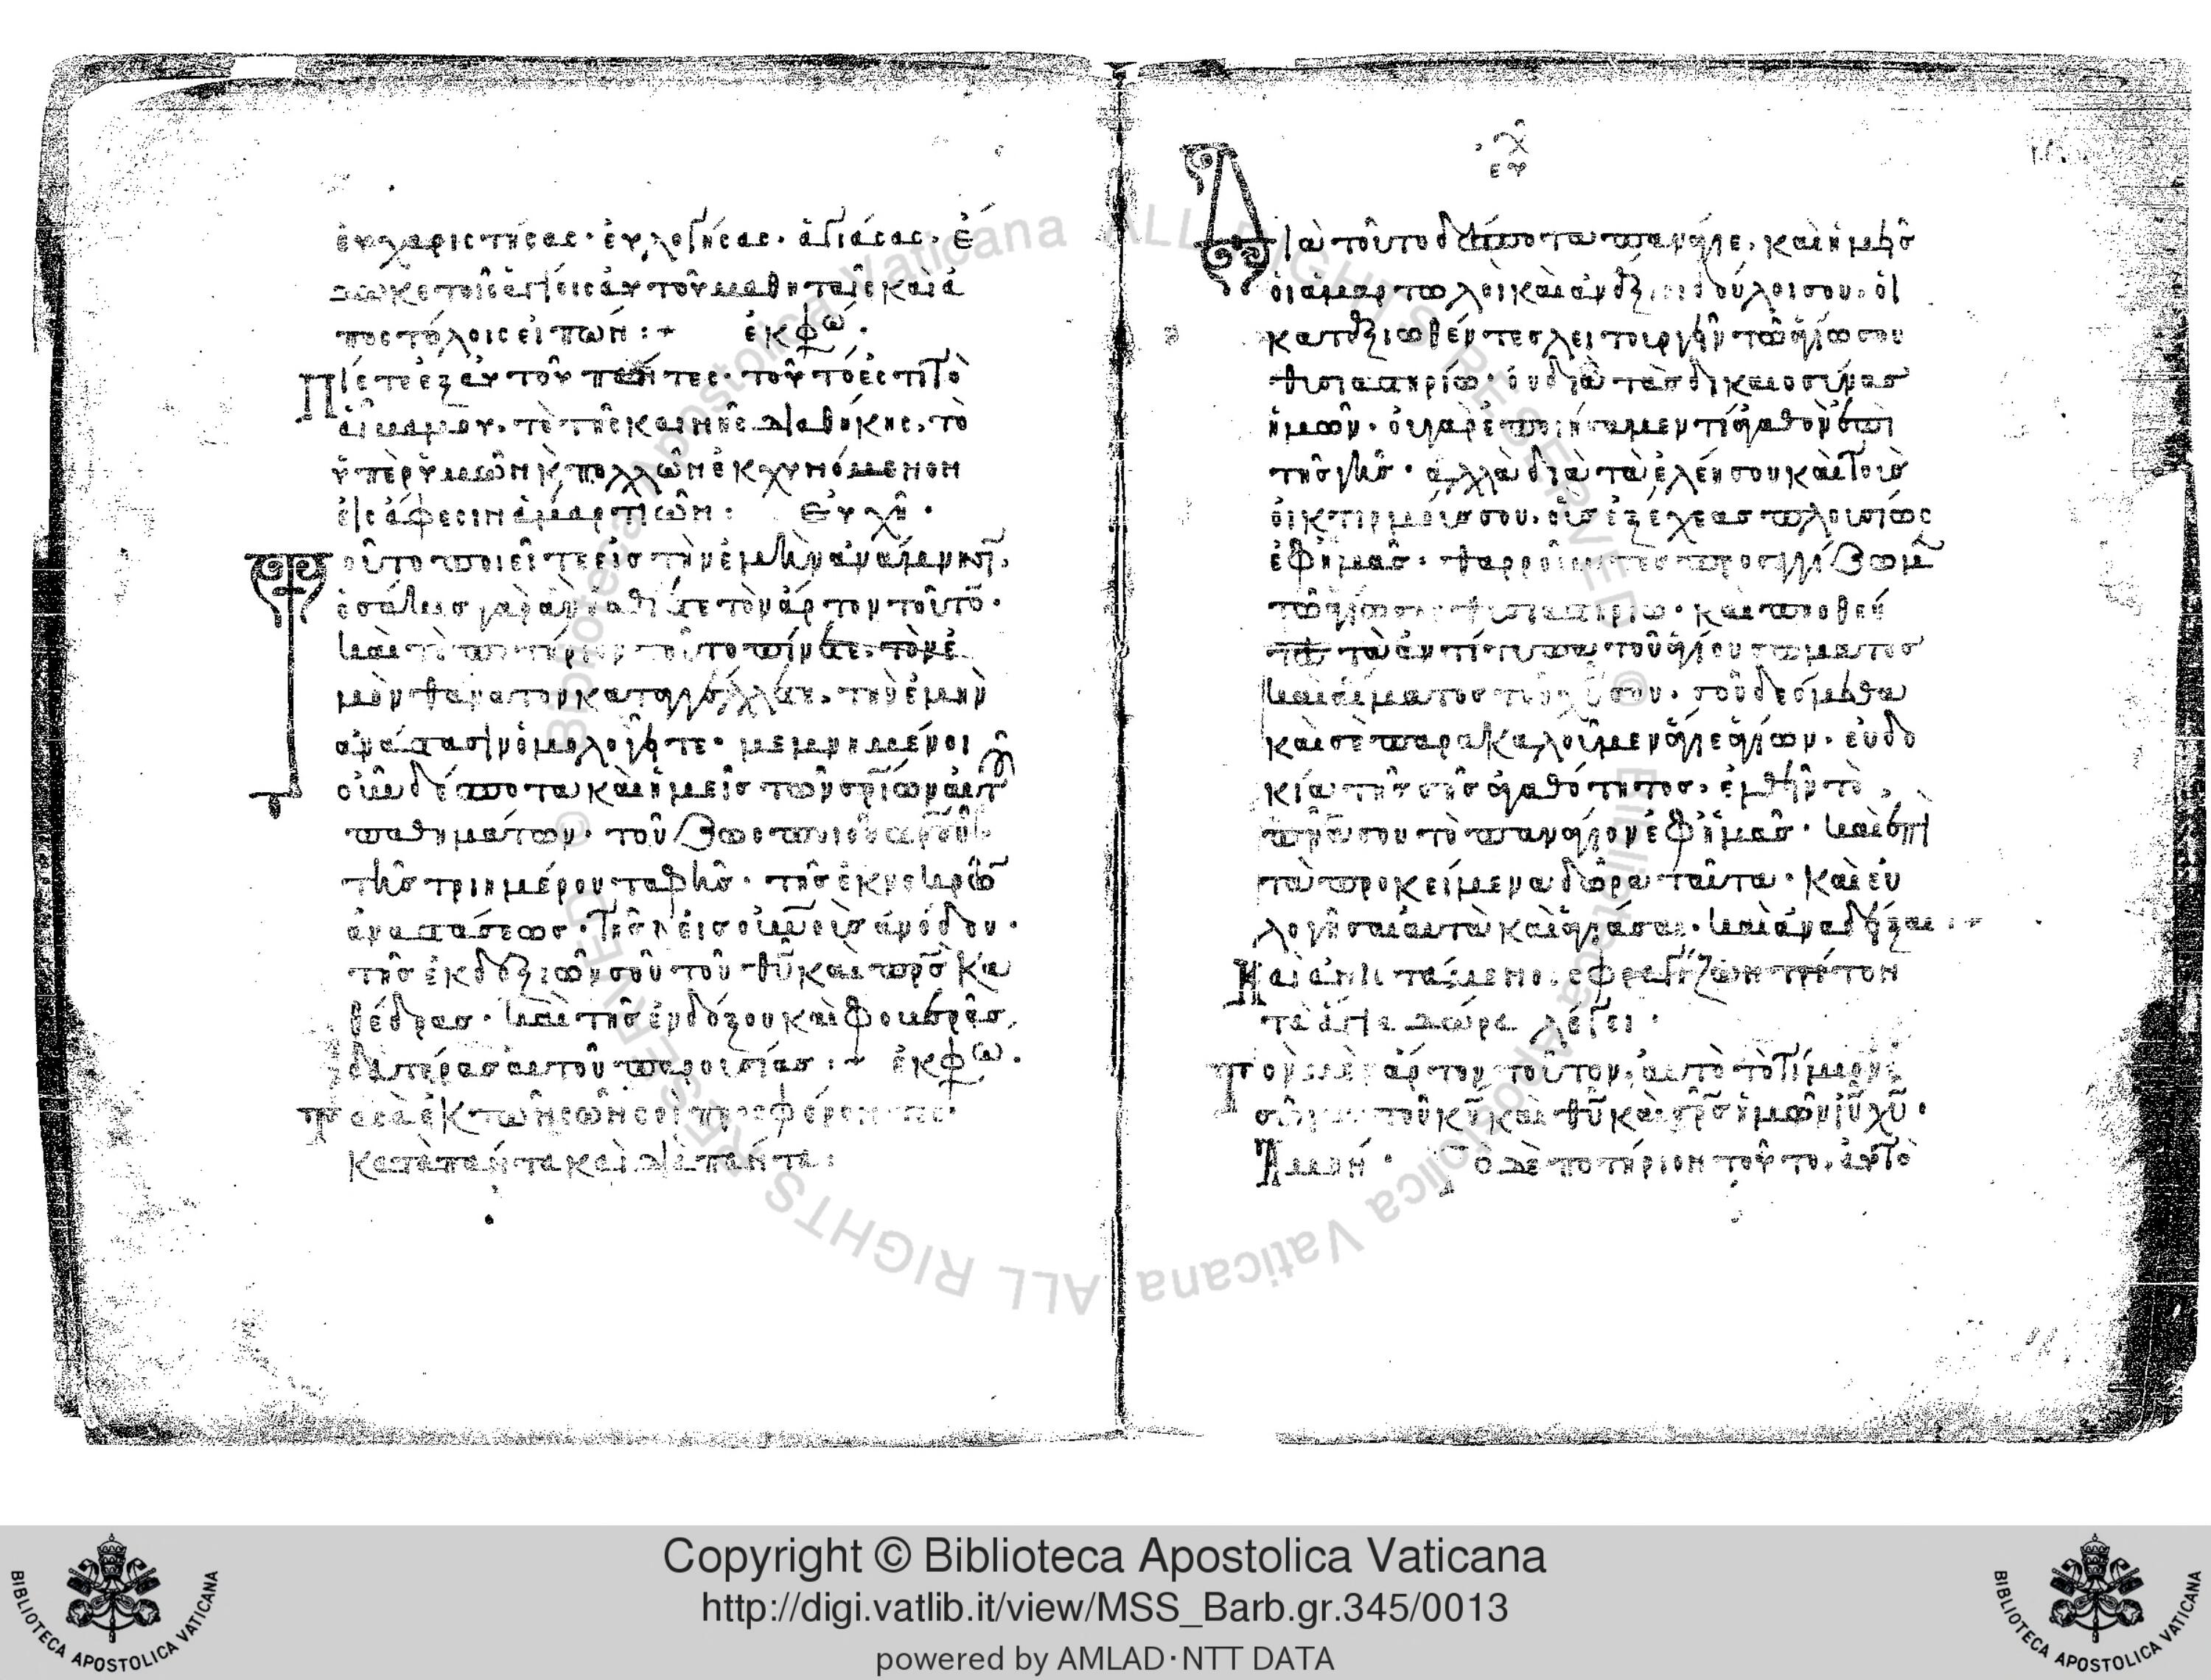 εὐχαριστήσας· εὐλογήσας· ἁγιάσας· ἔ
δωκε τοῖς ἁγίοις αὐτοῦ μαθηταῖς καὶ ἀ
ποστόλοις εἰπών :+ ἐκφω
Πίετε ἐξ αὐτοῦ πάντες· τοῦτό ἐστι τὸ
αἷμά μου· τὸ τῆς καινῆς διαθήκης· τὸ
ὑπὲρ ὑμῶν κ πολλῶν ἐκχυνόμενον
εἰς ἄφεσιν ἁμαρτιῶν : Εὐχὴ ·
Τοῦτο ποιεῖτε εἰς τὴν ἐμὴν ἀνάμνησ·
ὁσάκις γὰρ ἂν ἐσθίητε τὸν ἄρτον τοῦτο·
καὶ τὸ ποτήριον τοῦτο πίνητε· τὸν ἐ
μὸν θάνατον καταγγέλλετε· τὴν ἐμὴν
ἀνάστασιν ὁμολογεῖτε· μεμνημένοι
οὖν δέσποτα καὶ ἡμεῖς τῶν σρίων αὐτ
παθημάτων· τοῦ ζωοποιοῦ
τῆς τριημέρου ταφῆς· τῆς ἐκ νεκρῶ
ἀναστάσεως· τῆς εἰς οὐνοὺς ἀνόδου·
τῆς ἐκ δεξιῶν σοῦ τοῦ θυ καὶ πρς κα
θέδρας· καὶ τῆς ἐνδόξου καὶ φοβερᾶς
δευτέρας αὐτοῦ παρουσίας :+ ἐκφω ·
Τὰ σὰ ἐκ τῶν σῶν σοὶ προσφέροντες
κατὰ πάντα καὶ διὰ πάντα :
εὐχ
Διὰ τοῦτο δέσποτα πανάγιε· καὶ ἡμεῖς
οἱ ἁμαρτωλοὶ καὶ ἀνάξιοι δοῦλοι σου· οἱ
καταξιωθέντες λειτουργεῖν τῷ ἁγίω σου
θυσιαστηρίω· οὐ διὰ τὰς δικαιοσύνας
ἡμῶν· οὐ γὰρ ἐποιήσαμεν τί ἀγαθὸν ἐπὶ
τῆς γῆς· ἀλλὰ διὰ τὰ ἐλέη σου καὶ τοὺς
οἰκτιρμούς σου· οὓς ἐξέχεας πλουσίως
ἐφ ἡμᾶς· θαρροῦντες προσεγγίζωμ
τῷ ἁγίω σου θυσιαστηρίω· καὶ προθέν
τες τὰ ἀντίτυπα τοῦ ἁγίου σώματος
καὶ αἵματος τοῦ χυ σου· σοῦ δεόμεθα
καὶ σὲ παρακαλοῦμεν ἅγιε ἁγίων· εὐδο
κία τῆς σῆς ἀγαθότητος· ἐλθεῖν τὸ
πνα σου τὸ πανάγιον ἐφ ἡμᾶς· καὶ ἐπὶ
τὰ προκείμενα δῶρα ταῦτα· καὶ εὐ
λογῆσαι αὐτὰ καὶ ἁγιάσαι· καὶ ἀναδεῖξαι :+
Καὶ ἀνιστάμενος σφραγίζων τρίτον
τὰ ἅγια δῶρα λέγει ·
Τὸν μὲν ἄρτον τοῦτον· αὐτὸ τὸ τίμιον
σῶμα τοῦ κυ καὶ θυ καὶ σρς ἡμῶν ιυ χυ·
Ἀμήν · Τὸ δὲ ποτήριον τοῦτο· αὐτὸ
Copyright © Biblioteca Apostolica Vaticana
http://digi.vatlib.it/view/MSS_Barb.gr.345/0013
powered by AMLAD·NTT DATA
BIBLIOTECA APOSTOLICA VATICANA
BIBLIOTECA APOSTOLICA VATICANA